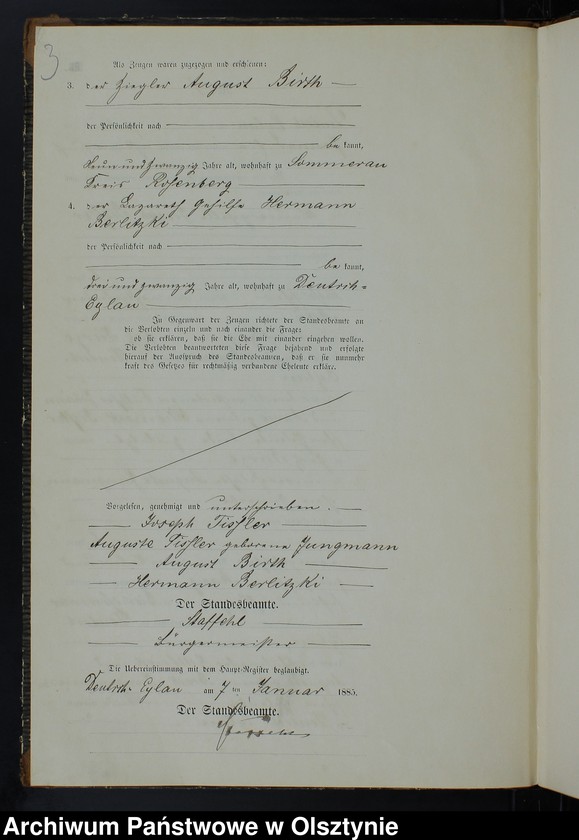 3
Als Zeugen waren zugezogen und erschienen:
3. der Ziegler August Birth
der Persönlichkeit nach
be kannt,
Neunundzwanzig Jahre alt, wohnhaft zu Sommerau
Kreis Rosenberg
4. der Lazareth Gehilfe Hermann
Berlitzki
der Persönlichkeit nach
be kannt,
drei und zwanzig Jahre alt, wohnhaft zu Deutsch-
Eylau
In Gegenwart der Zeugen richtete der Standesbeamte an
die Verlobten einzeln und nach einander die Frage:
ob sie erklären, daß sie die Ehe mit einander eingehen wollen.
Die Verlobten beantworteten diese Frage bejahend und erfolgte
hierauf der Ausspruch des Standesbeamten, daß er sie nunmehr
kraft des Gesetzes für rechtmäßig verbundene Eheleute erkläre.
Vorgelesen, genehmigt und unterschrieben.
Joseph Tissler
Auguste Tissler geborene Jungmann
August Birth
Hermann Berlitzki
Der Standesbeamte.
Staffehl
Bürgermeister
Die Uebereinstimmung mit dem Haupt-Register beglaubigt.
Deutsch-Eylau am 7 ten Januar 1885.
Der Standesbeamte.
Archiwum Państwowe w Olsztynie